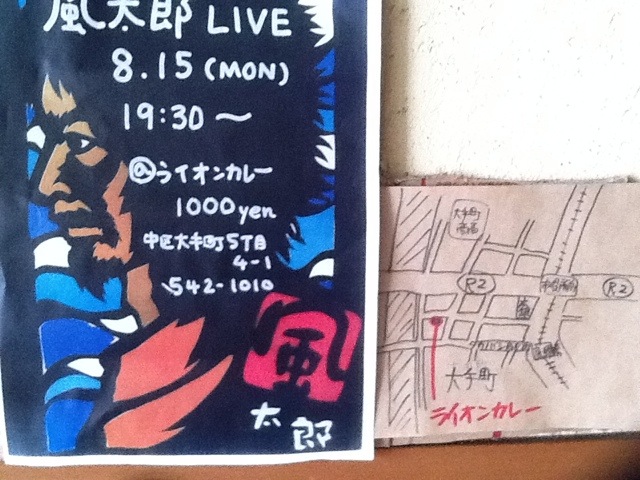 風太郎 LIVE
8.15 (MON)
19:30 〜
@ライオンカレー
1000yen
中区大手町5丁目
4-1
542-1010
風
太
郎
大手町
商高
R2
R2
大手町
ライオンカレー